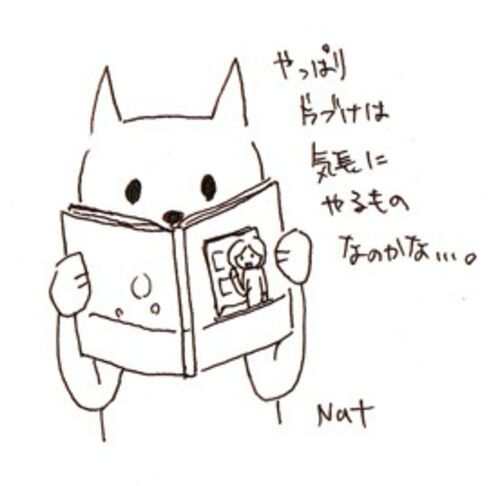 やっぱり
片づけは
気長に
やるもの
なのかな...。
Nat